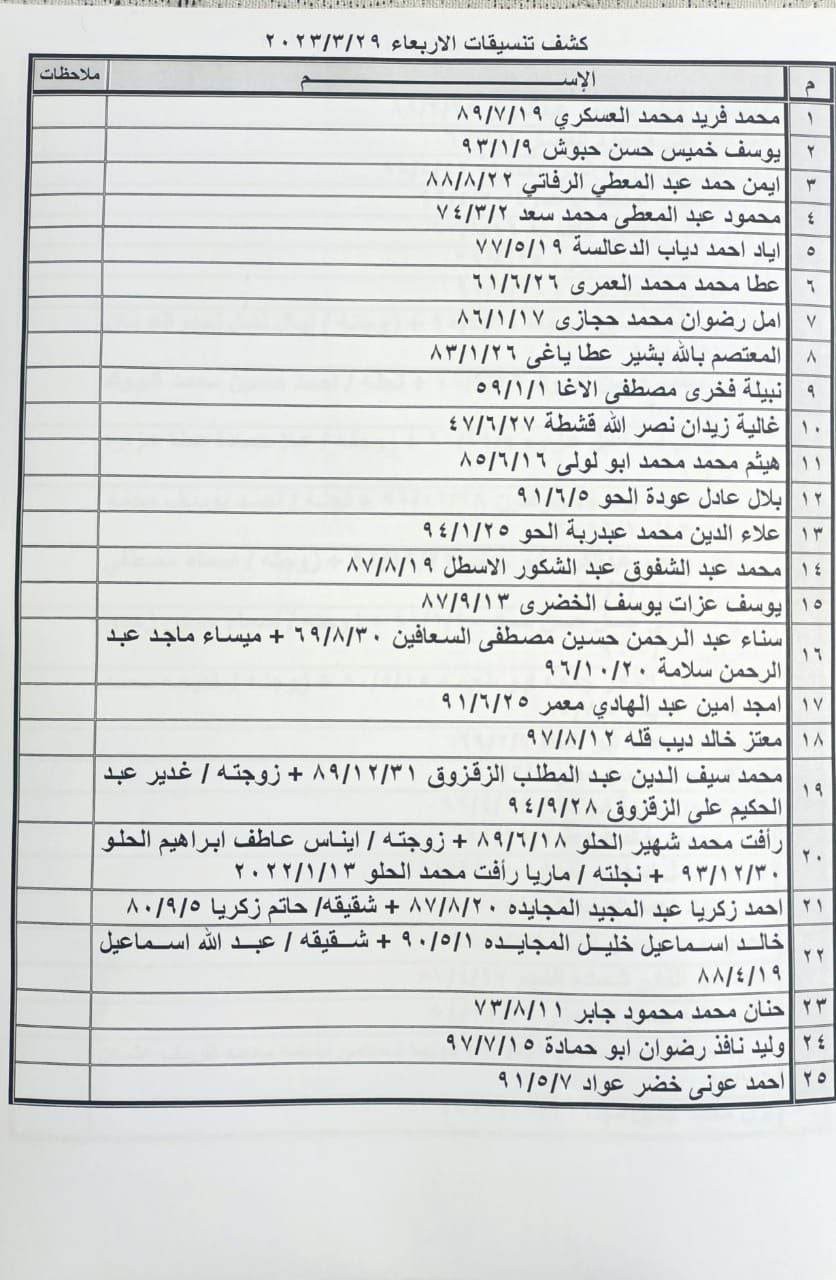 كشف تنسيقات الاربعاء ٢٠٢٣/٣/٢٩
م الإســــــــم ملاحظات
١ محمد فريد محمد العسكري ٨٩/٧/١٩
٢ يوسف خميس حسن حبوش ٩٣/١/٩
٣ ايمن حمد عبد المعطي الرفاتي ٨٨/٨/٢٢
٤ محمود عبد المعطى محمد سعد ٧٤/٣/٢
٥ اياد احمد دياب الدعالسة ٧٧/٥/١٩
٦ عطا محمد محمد العمرى ٦١/٦/٢٦
٧ امل رضوان محمد حجازى ٨٦/١/١٧
٨ المعتصم بالله بشير عطا ياغى ٨٣/١/٢٦
٩ نبيلة فخرى مصطفى الاغا ٥٩/١/١
١٠ غالية زيدان نصر الله قشطة ٤٧/٦/٢٧
١١ هيثم محمد محمد ابو لولى ٨٥/٦/١٦
١٢ بلال عادل عودة الحو ٩١/٦/٥
١٣ علاء الدين محمد عبدربة الحو ٩٤/١/٢٥
١٤ محمد عبد الشفوق عبد الشكور الاسطل ٨٧/٨/١٩
١٥ يوسف عزات يوسف الخضرى ٨٧/٩/١٣
١٦ سناء عبد الرحمن حسين مصطفى السعافين ٦٩/٨/٣٠ + ميساء ماجد عبد
الرحمن سلامة ٩٦/١٠/٢٠
١٧ امجد امين عبد الهادي معمر ٩١/٦/٢٥
١٨ معتز خالد ديب قله ٩٧/٨/١٢
١٩ محمد سيف الدين عبد المطلب الزقزوق ٨٩/١٢/٣١ + زوجته / غدير عبد
الحكيم على الزقزوق ٩٤/٩/٢٨
٢٠ رأفت محمد شهير الحلو ٨٩/٦/١٨ + زوجته / ايناس عاطف ابراهيم الحلو
٩٣/١٢/٣٠ + نجلته / ماريا رأفت محمد الحلو ٢٠٢٢/١/١٣
٢١ احمد زكريا عبد المجيد المجايده ٨٧/٨/٢٠ + شقيقه/ حاتم زكريا ٨٠/٩/٥
٢٢ خالد اسماعيل خليل المجايده ٩٠/٥/١ + شقيقه / عبد الله اسماعيل
٨٨/٤/١٩
٢٣ حنان محمد محمود جابر ٧٣/٨/١١
٢٤ وليد نافذ رضوان ابو حمادة ٩٧/٧/١٥
٢٥ احمد عونى خضر عواد ٩١/٥/٧